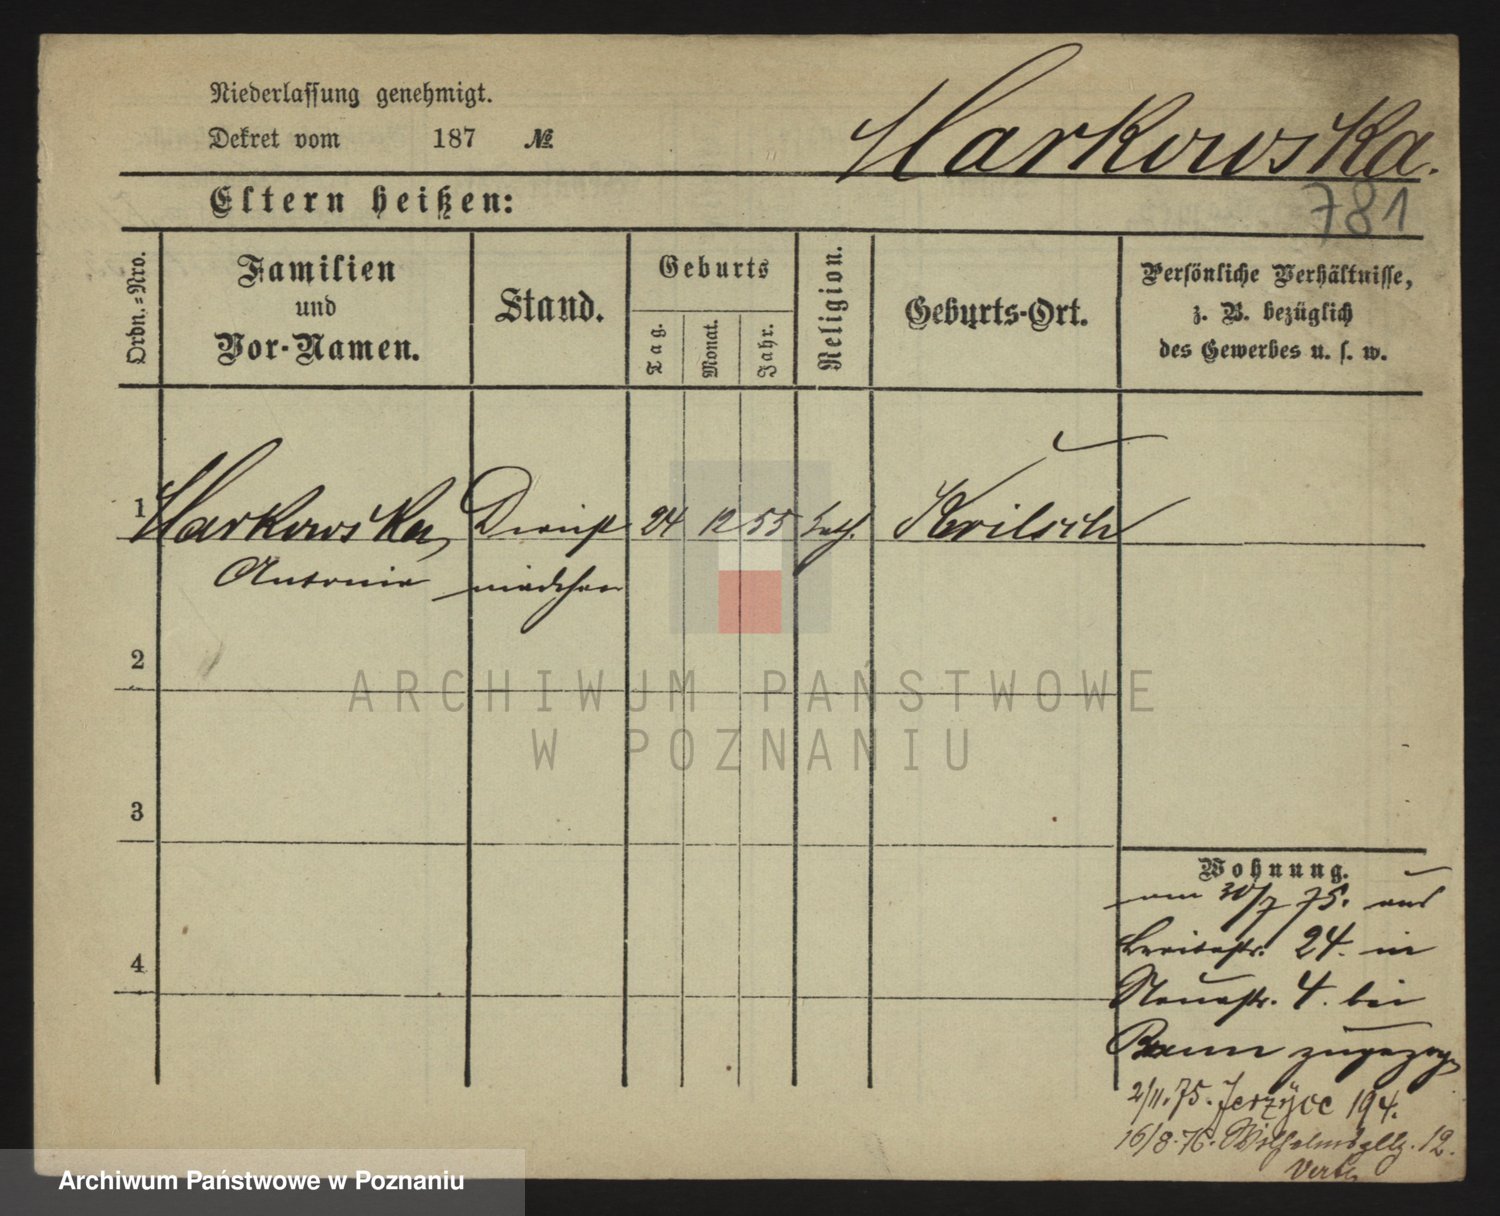 Niederlassung genehmigt.
Dekret vom 187 №
Markowska.
781
Eltern heißen:
Ordn.-Nro.
Familien und Vor-Namen.
Stand.
Geburts
Tag.
Monat.
Jahr.
Religion.
Geburts-Ort.
Persönliche Verhältnisse,
z. B. bezüglich
des Gewerbes u. s. w.
1 Markowska, Dienst 24 12 55 kath.
Antonie mädchen
2
ARCHIWUM PAŃSTWOWE
W POZNANIU
3
4
Wohnung.
am 30/7 75. aus
Breitestr. 24. in
Neuestr. 4. bei
zugezogen
2/11.75. Jerzyce 194.
16/8.76. 12.
Verte
Archiwum Państwowe w Poznaniu